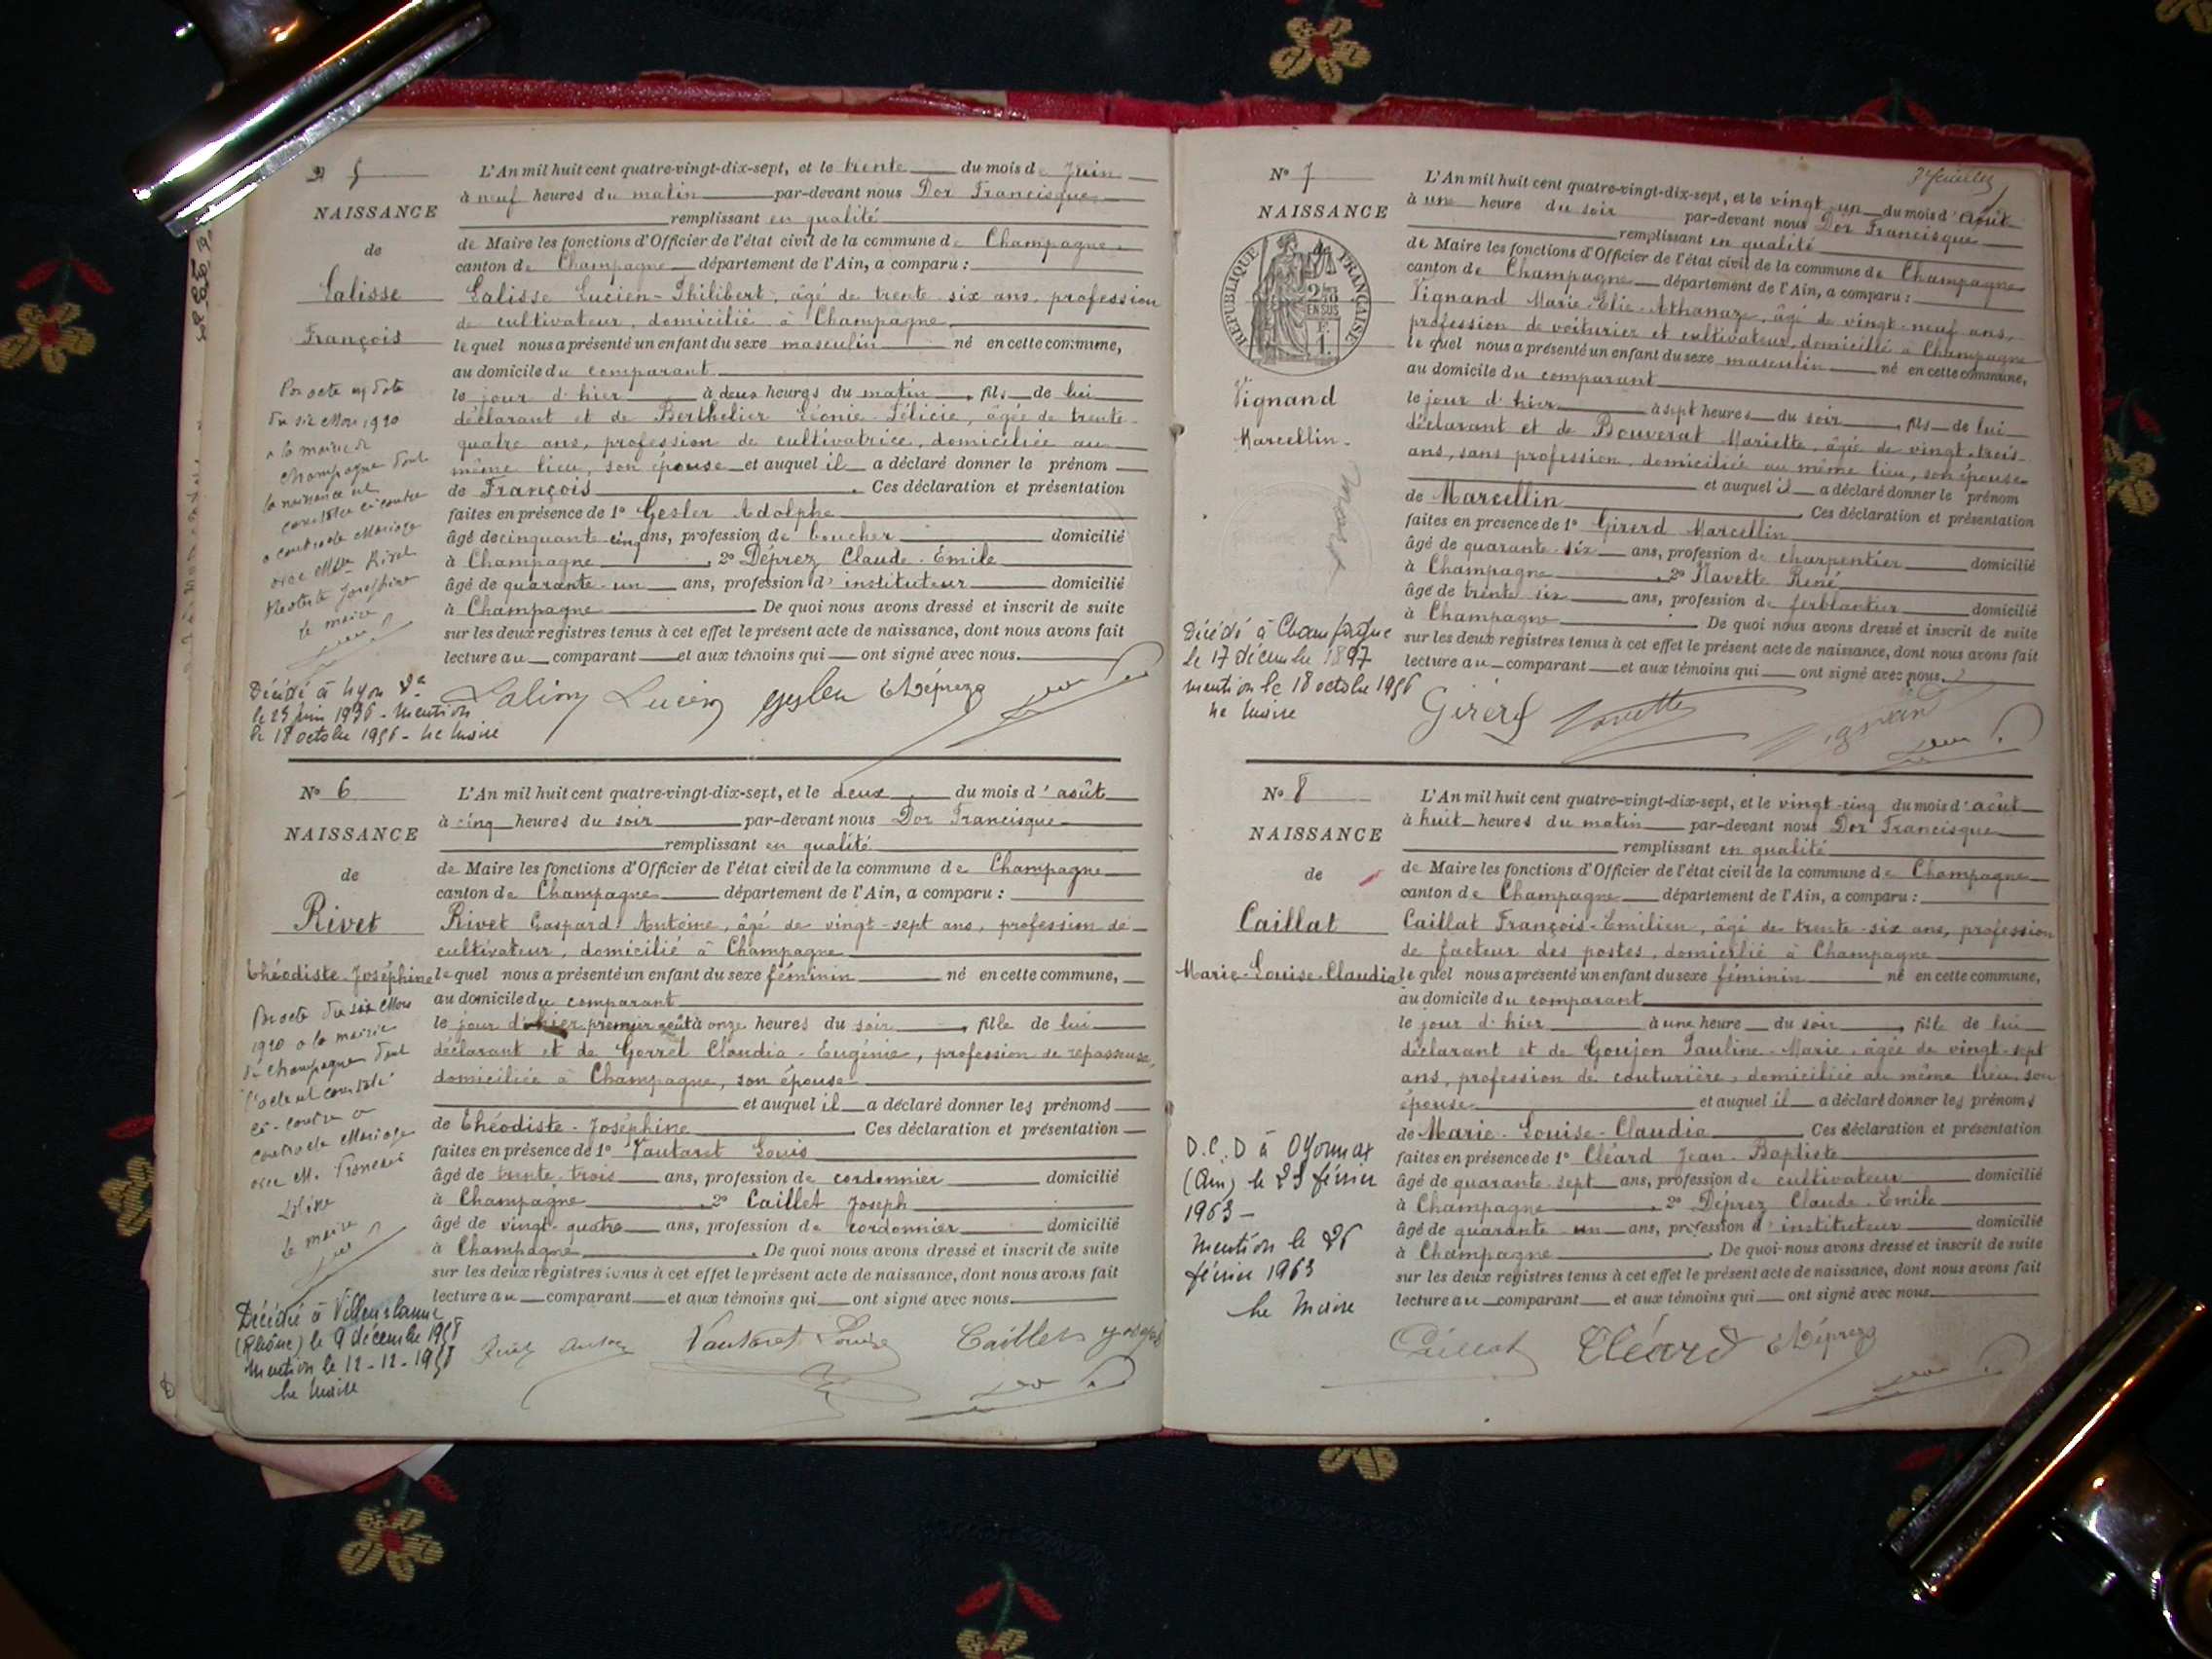 N° 5
NAISSANCE
de
Lalisse
François
L'An mil huit cent quatre-vingt-dix-sept, et le trente du mois de Juin
à neuf heures du matin par-devant nous Dor Francisque
remplissant en qualité
de Maire les fonctions d'Officier de l'état civil de la commune de Champagne
canton de Champagne département de l'Ain, a comparu :
Lalisse Lucien-Philibert, âgé de trente-six ans, profession
de cultivateur, domicilié à Champagne
lequel nous a présenté un enfant du sexe masculin né en cette commune,
au domicile du comparant
le jour d'hier à deux heures du matin, fils de lui
déclarant et de Berthelier Léonie-Félicie, âgée de trente-
quatre ans, profession de cultivatrice, domiciliée au
même lieu, son épouse et auquel il a déclaré donner le prénom
de François. Ces déclaration et présentation
faites en présence de 1° Gesler Adolphe
âgé de cinquante-cinq ans, profession de boucher domicilié
à Champagne, 2° Déprez Claude-Emile
âgé de quarante-un ans, profession d'instituteur domicilié
à Champagne. De quoi nous avons dressé et inscrit de suite
sur les deux registres tenus à cet effet le présent acte de naissance, dont nous avons fait
lecture au comparant et aux témoins qui ont signé avec nous.
Par acte en date
du six Mars 1920
a la mairie de
Champagne dont
la naissance est
constatée ci contre
a contracté Mariage
avec Melle Rivet
Théodiste Joséphine
le maire
Décédé à Lyon
le 25 juin 1936 - Mention
le 18 octobre 1956 - Le Maire
Lalisse Lucien Gesler EDéprez
N° 6
NAISSANCE
de
Rivet
Théodiste-Joséphine
L'An mil huit cent quatre-vingt-dix-sept, et le deux du mois d'août
à cinq heures du soir par-devant nous Dor Francisque
remplissant en qualité
de Maire les fonctions d'Officier de l'état civil de la commune de Champagne
canton de Champagne département de l'Ain, a comparu :
Rivet Gaspard Antoine, âgé de vingt-sept ans, profession de
cultivateur, domicilié à Champagne
lequel nous a présenté un enfant du sexe féminin né en cette commune,
au domicile du comparant
le jour d'hier premier août à onze heures du soir, fille de lui
déclarant et de Gorrel Claudia-Eugénie, profession de repasseuse,
domiciliée à Champagne, son épouse
et auquel il a déclaré donner les prénoms
de Théodiste-Joséphine. Ces déclaration et présentation
faites en présence de 1° Vautaret Louis
âgé de trente-trois ans, profession de cordonnier domicilié
à Champagne, 2° Caillet Joseph
âgé de vingt-quatre ans, profession de cordonnier domicilié
à Champagne. De quoi nous avons dressé et inscrit de suite
sur les deux registres tenus à cet effet le présent acte de naissance, dont nous avons fait
lecture au comparant et aux témoins qui ont signé avec nous.
Par acte du six Mars
1920 a la mairie
de Champagne dont
l'acte est constaté
ci-contre a
contracté Mariage
avec M. François
Lalisse
le maire
Décédée à Villeurbanne
(Rhône) le 9 décembre 1958
Mention le 12-12-1958
Le Maire
Vautaret Louis Caillet Joseph
N° 7
NAISSANCE
de
RÉPUBLIQUE FRANÇAISE
2/10
EN SUS
Vignand
Marcellin
L'An mil huit cent quatre-vingt-dix-sept, et le vingt-un du mois d'Août
à une heure du soir par-devant nous Dor Francisque
remplissant en qualité
de Maire les fonctions d'Officier de l'état civil de la commune de Champagne
canton de Champagne département de l'Ain, a comparu :
Vignand Marie-Elie-Athanaze, âgé de vingt-neuf ans,
profession de voiturier et cultivateur, domicilié à Champagne
lequel nous a présenté un enfant du sexe masculin né en cette commune,
au domicile du comparant
le jour d'hier à sept heures du soir, fils de lui
déclarant et de Bouverat Mariette, âgée de vingt-trois
ans, sans profession, domiciliée au même lieu, son épouse
et auquel il a déclaré donner le prénom
de Marcellin. Ces déclaration et présentation
faites en présence de 1° Girerd Marcellin
âgé de quarante-six ans, profession de charpentier domicilié
à Champagne, 2° Navette René
âgé de trente-six ans, profession de ferblantier domicilié
à Champagne. De quoi nous avons dressé et inscrit de suite
sur les deux registres tenus à cet effet le présent acte de naissance, dont nous avons fait
lecture au comparant et aux témoins qui ont signé avec nous.
Décédé à Champagne
le 17 décembre 1897
mention le 18 octobre 1956
Le Maire
Girerd Navette Vignand
N° 8
NAISSANCE
de
Caillat
Marie-Louise-Claudia
L'An mil huit cent quatre-vingt-dix-sept, et le vingt-cinq du mois d'août
à huit heures du matin par-devant nous Dor Francisque
remplissant en qualité
de Maire les fonctions d'Officier de l'état civil de la commune de Champagne
canton de Champagne département de l'Ain, a comparu :
Caillat François-Emilien, âgé de trente-six ans, profession
de facteur des postes, domicilié à Champagne
lequel nous a présenté un enfant du sexe féminin né en cette commune,
au domicile du comparant
le jour d'hier à une heure du soir, fille de lui
déclarant et de Goujon Pauline-Marie, âgée de vingt-sept
ans, profession de couturière, domiciliée au même lieu, son
épouse et auquel il a déclaré donner les prénoms
de Marie-Louise-Claudia. Ces déclaration et présentation
faites en présence de 1° Cléard Jean-Baptiste
âgé de quarante-sept ans, profession de cultivateur domicilié
à Champagne, 2° Déprez Claude-Emile
âgé de quarante-un ans, profession d'instituteur domicilié
à Champagne. De quoi nous avons dressé et inscrit de suite
sur les deux registres tenus à cet effet le présent acte de naissance, dont nous avons fait
lecture au comparant et aux témoins qui ont signé avec nous.
D.C.D à Oyonnax
(Ain) le 25 février
1963 -
Mention le 26
février 1963
Le Maire
Caillat Cléard EDéprez